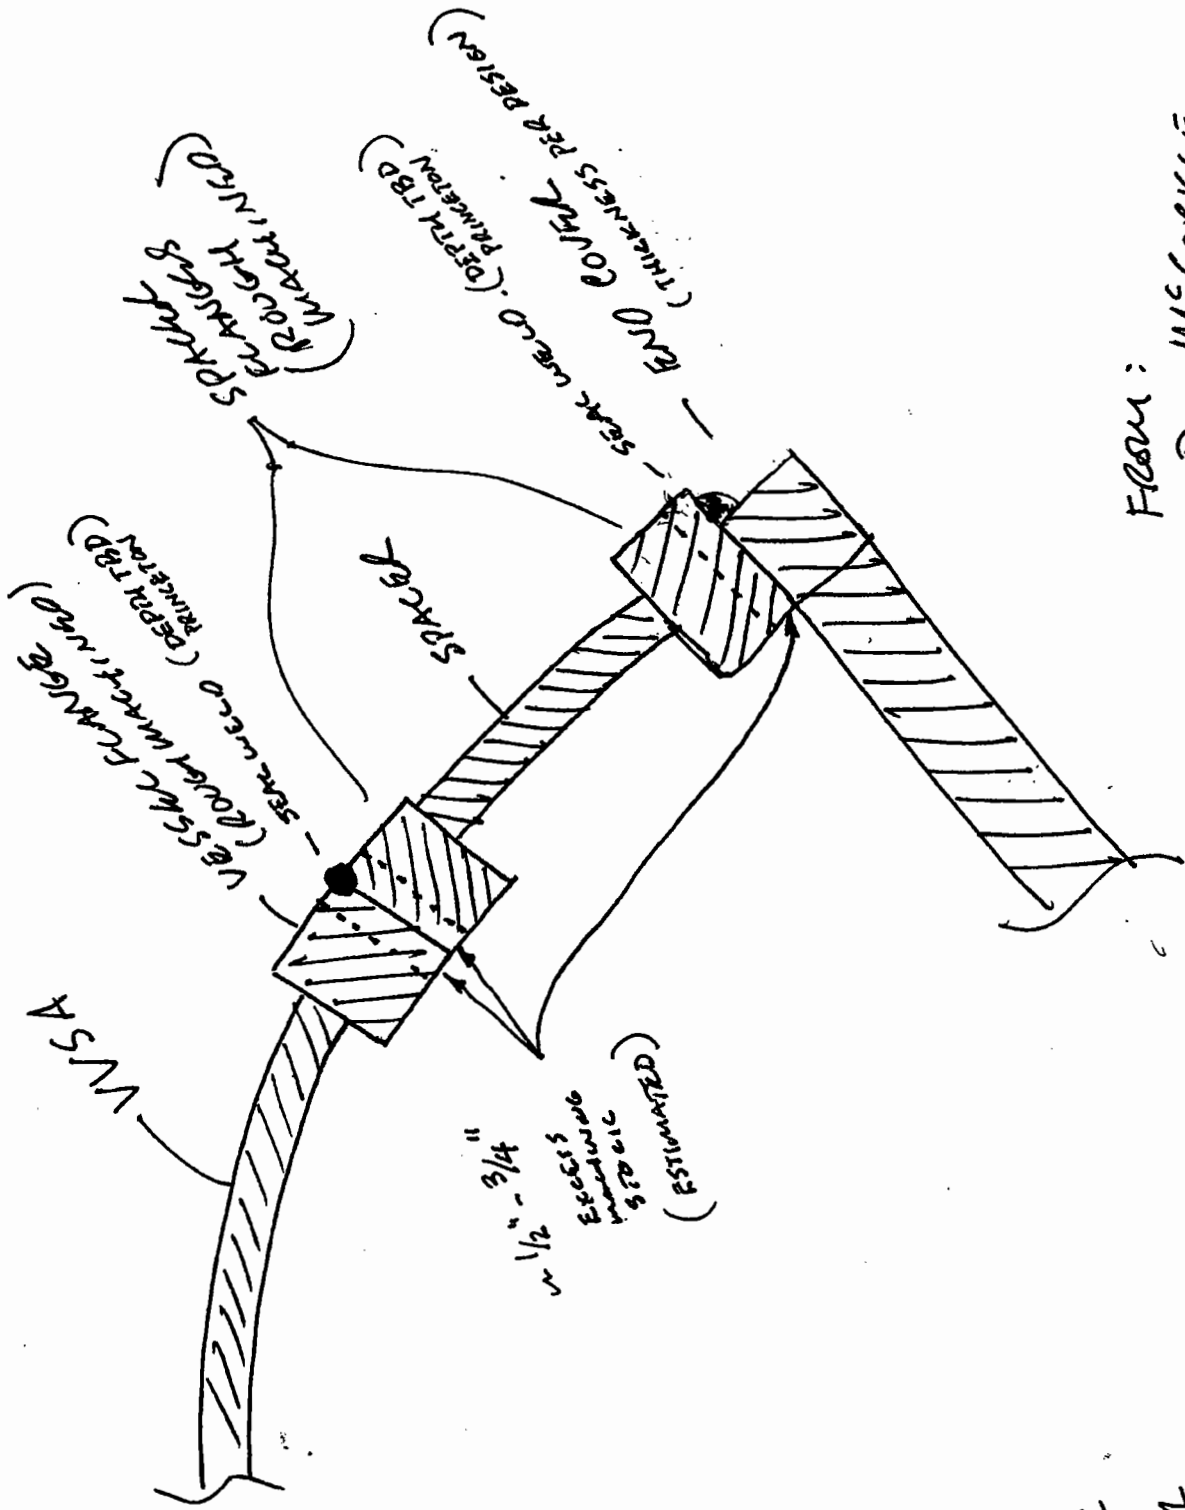 VVSA
VESSEL FLANGE
(ROUGH MACHINED)
SEAL WELD (DEPTH TBD
PRINCETON)
SPACER
FLANGES
(ROUGH
MACHINED)
SPACER
SEAL WELD (DEPTH TBD
PRINCETON)
END COVER
(THICKNESS PER DESIGN)
~ 1/2" - 3/4"
EXCESS
MACHINING
STOCK
(ESTIMATED)
FROM: